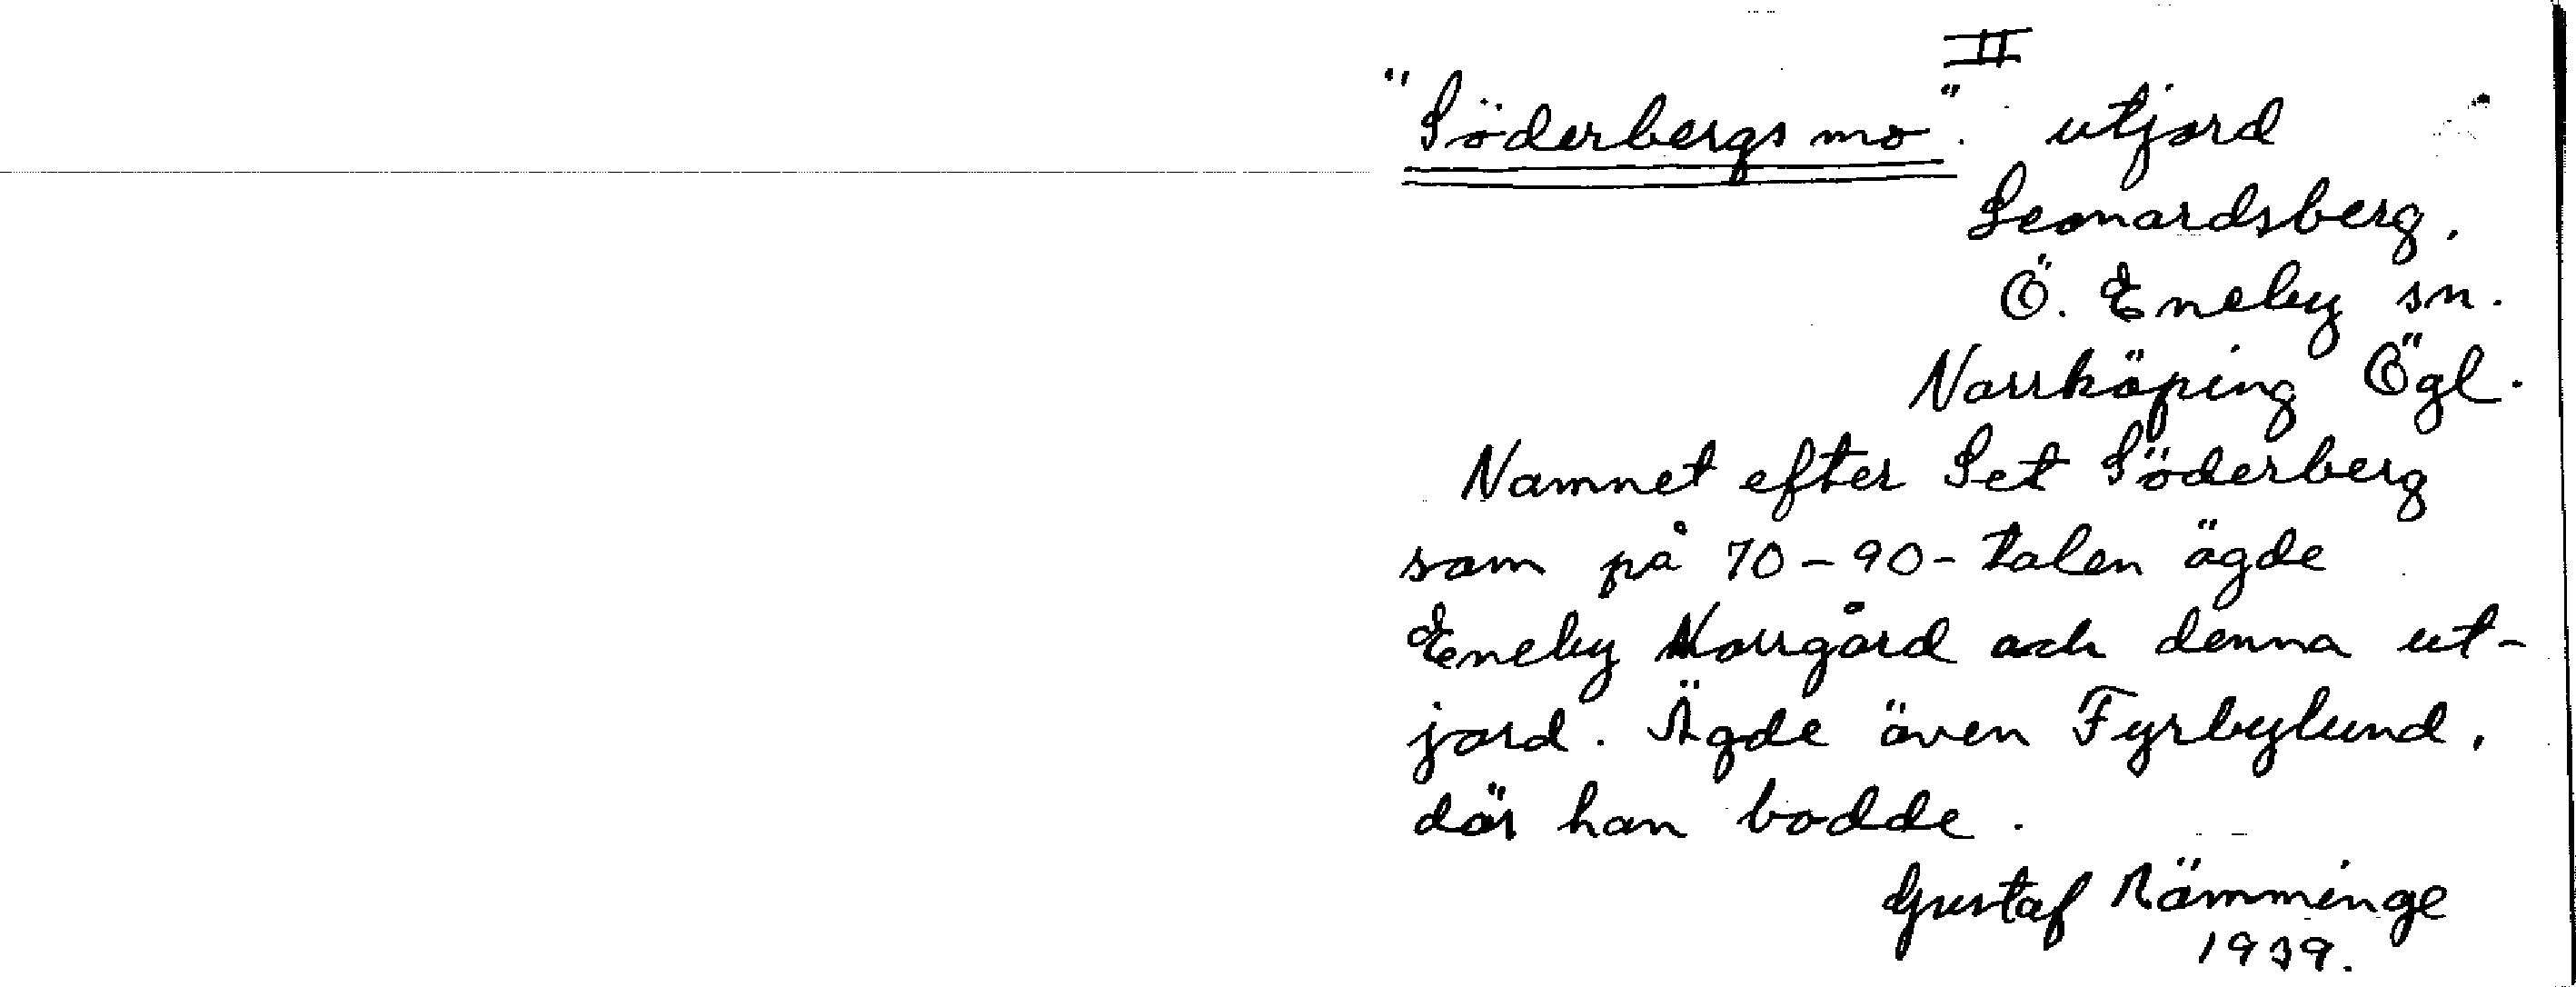 II
"Söderbergs mo". utjord
Leonardsberg,
Ö. Eneby sn.
Norrköping Ögl.
Namnet efter Set Söderberg
som på 70-90-talen ägde
Eneby Norrgård och denna ut-
jord. Ägde även Fyrbylund,
där han bodde.
Gustaf Rämminge
1939.